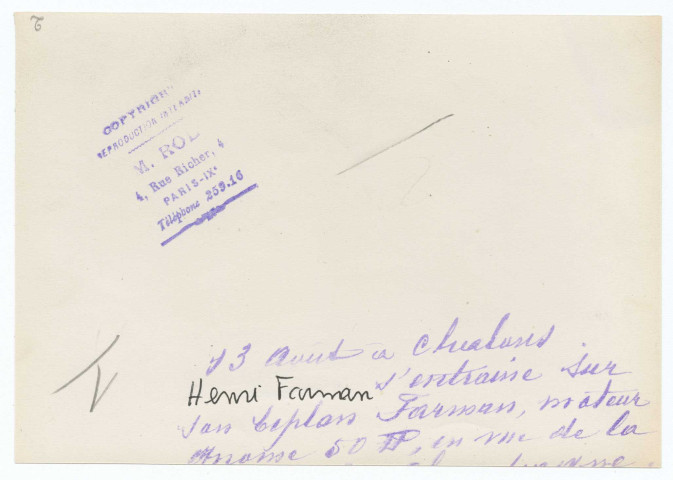 2
COPYRIGHT
REPRODUCTION INTERDITE
M. ROL
4, Rue Richer, 4
PARIS-IXe
Téléphone 259.16
13 Août à Chalons
Henri Farman s'entraine sur
son biplan Farman, moteur
Gnome 50 HP, en vue de la